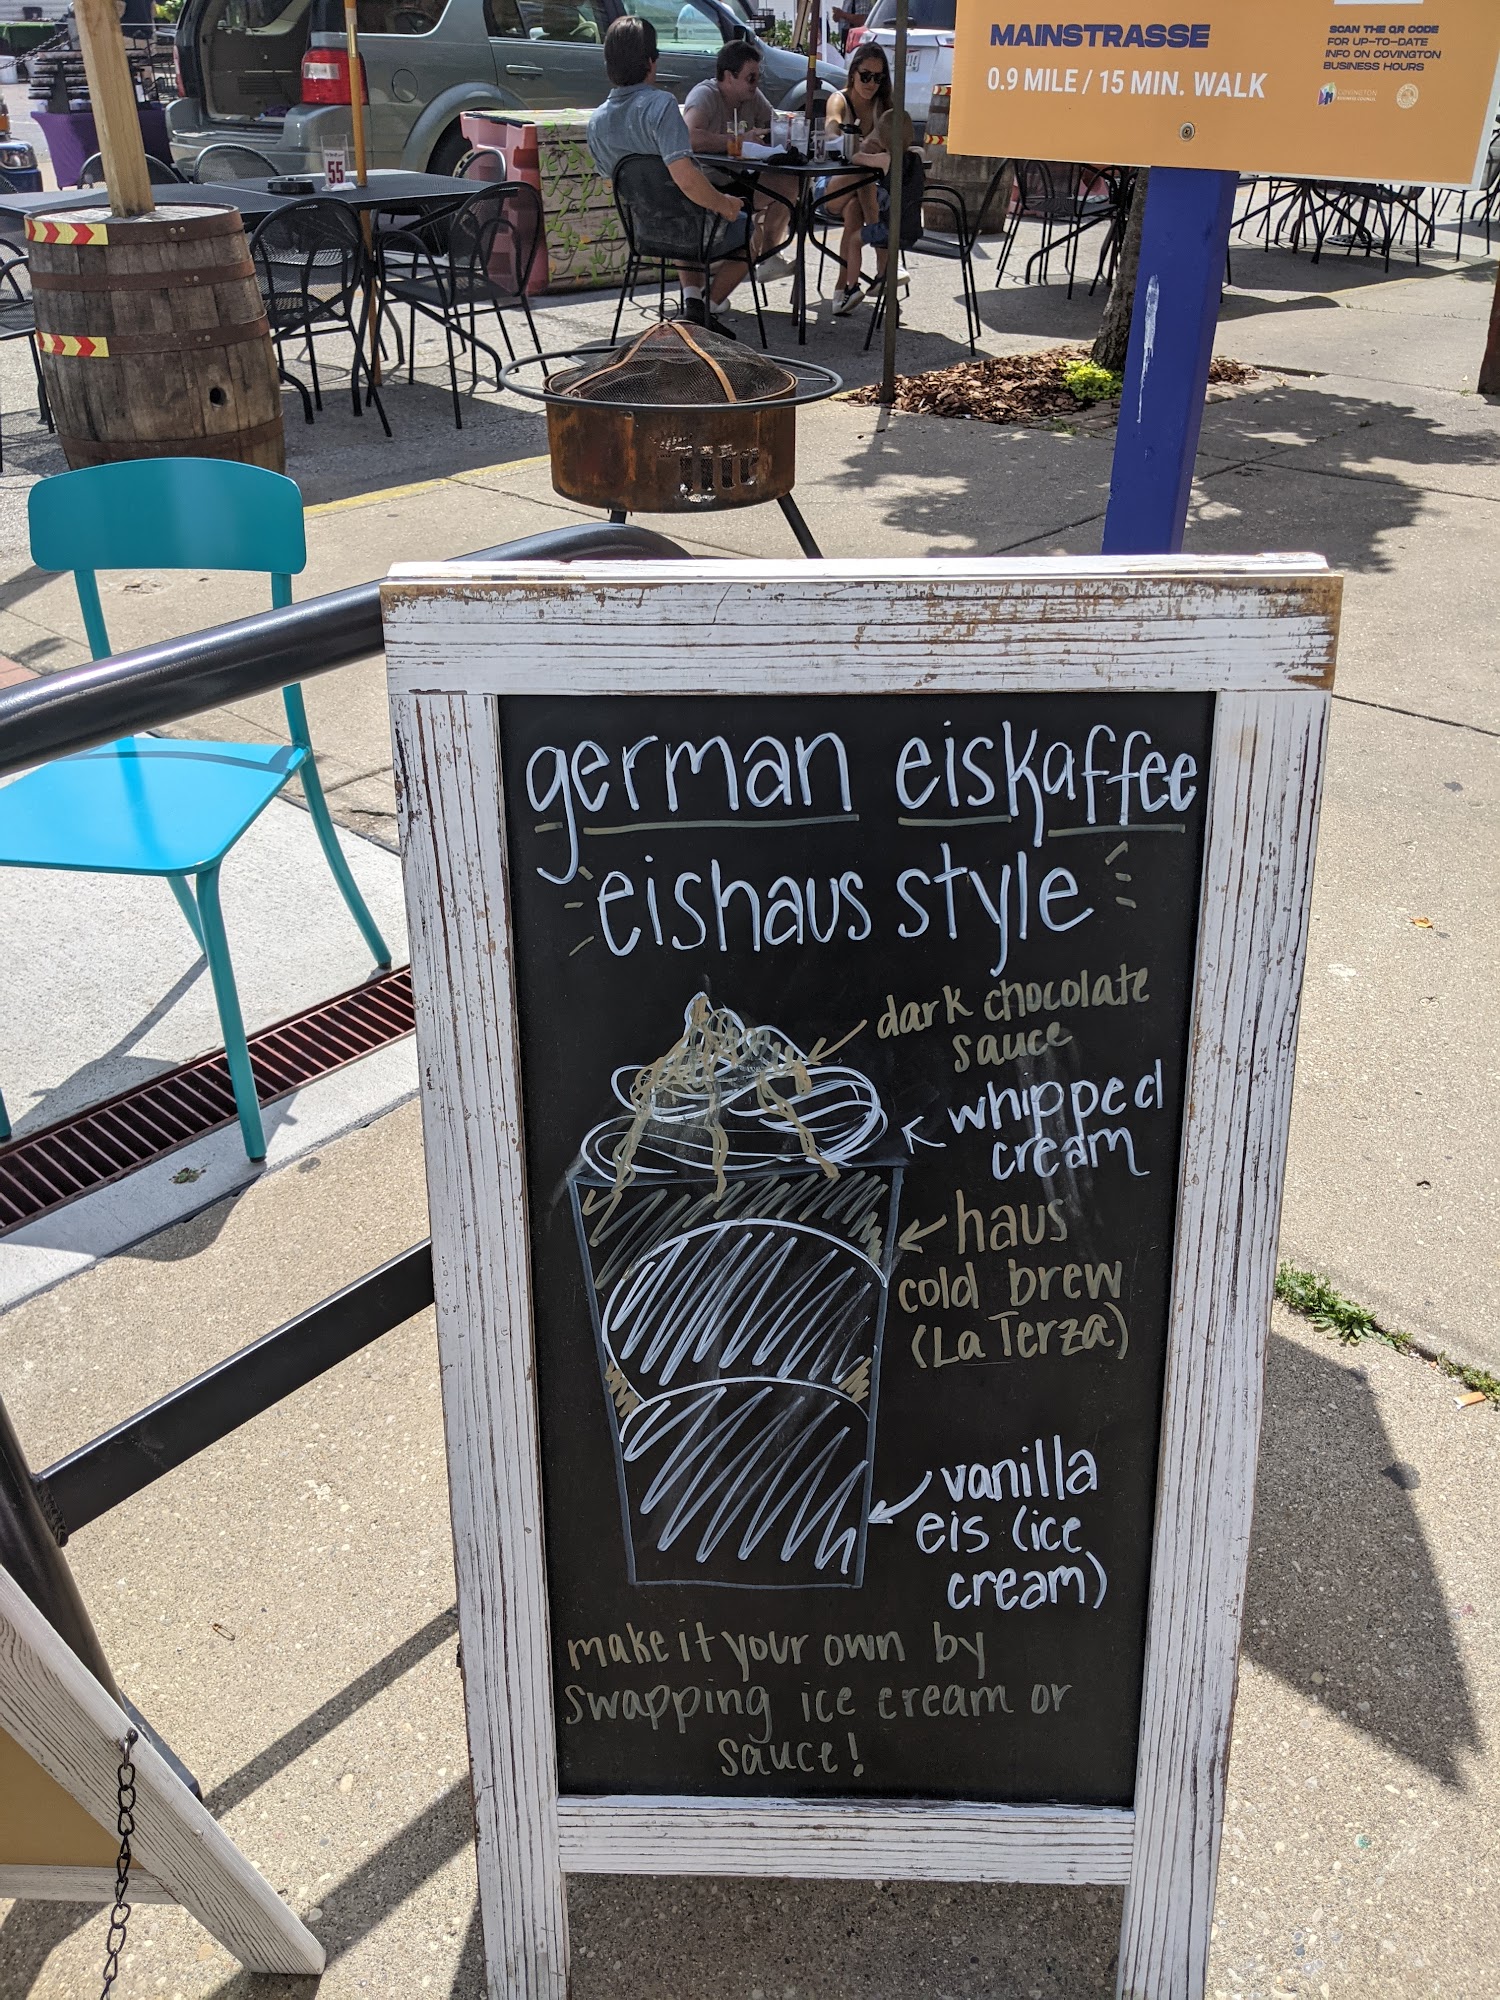 MAINSTRASSE
0.9 MILE / 15 MIN. WALK
SCAN THE QR CODE
FOR UP-TO-DATE
INFO ON COVINGTON
BUSINESS HOURS
COVINGTON
55
german eiskaffee
eishaus style
dark chocolate
sauce
whipped
cream
haus
cold brew
(La Terza)
vanilla
eis (ice
cream)
make it your own by
swapping ice cream or
sauce!